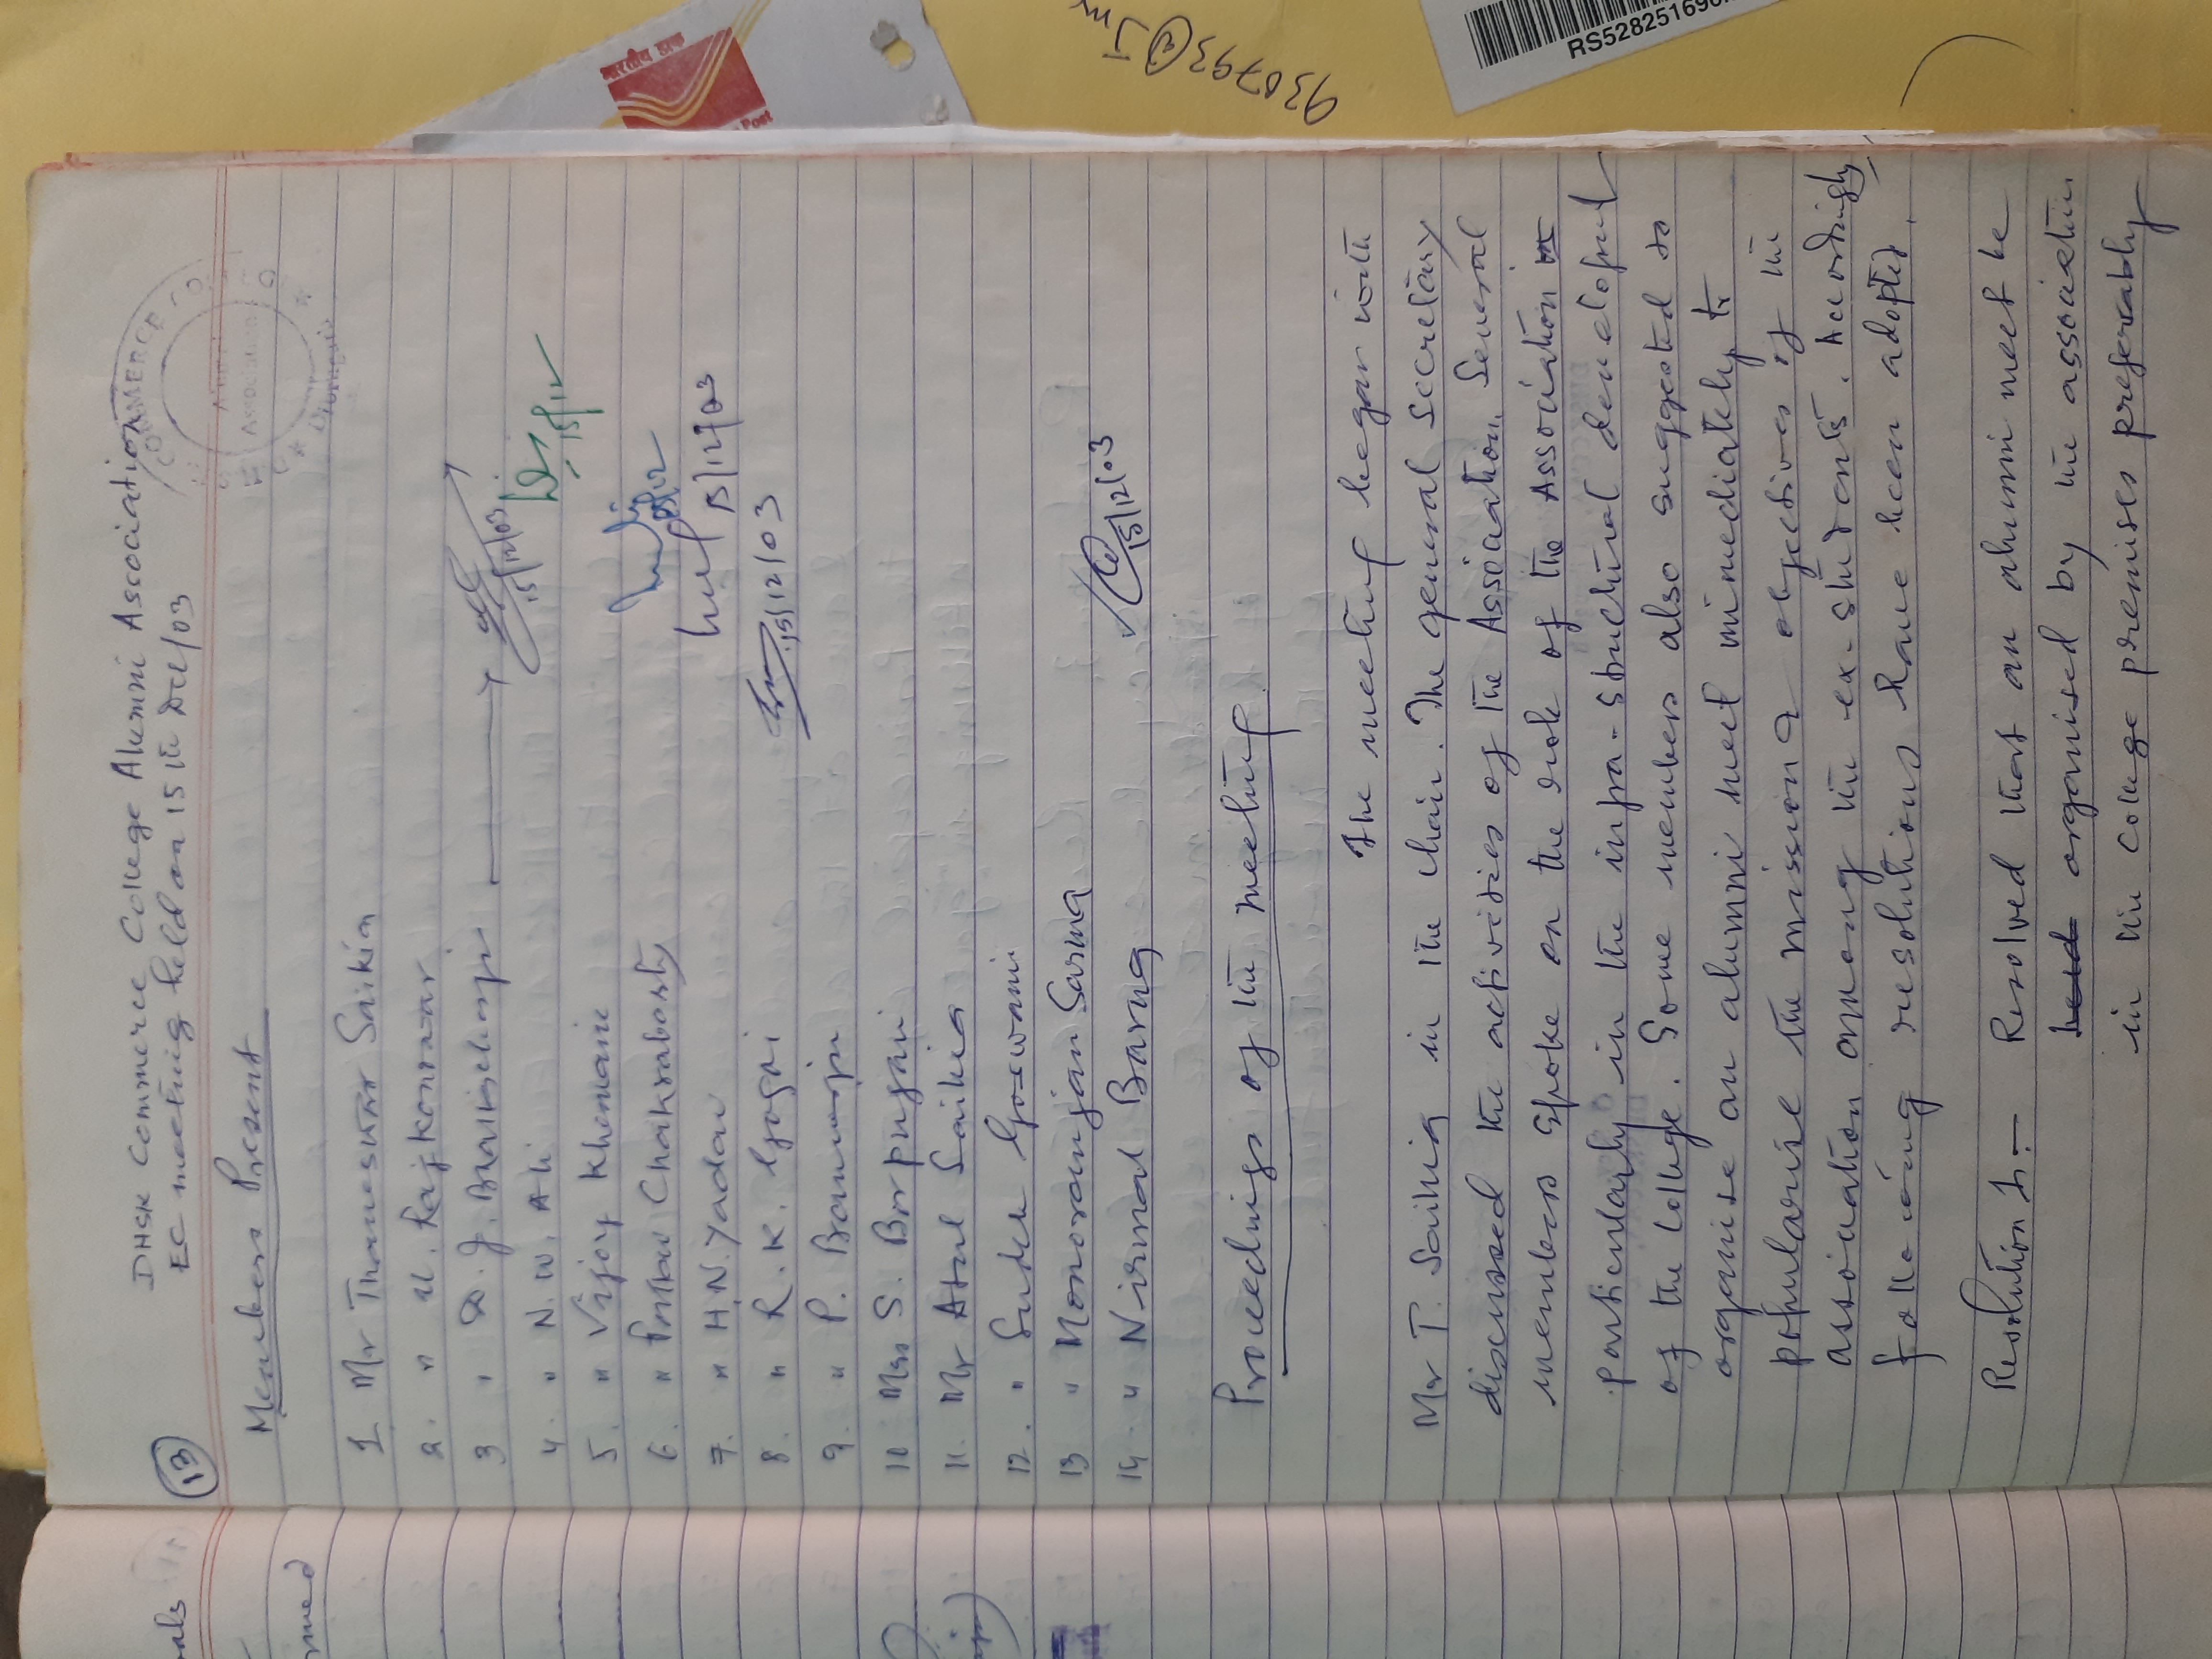 (13)
DHSK Commerce College Alumni Association
EC meeting held on 15th Dec/03
COMMERCE CO
Association
Members Present
1. Mr Thaneswar Saikia
2. " U. Rajkonwar
3 " D. J. Brahmachari
15/12/03
4. " N. W. Ali
15/12
5. " Vijoy Khemani
6. " Pritom Chakraborty
15/12
7. " H.N. Yadav
15/12/03
8. " R. K. Gogoi
15/12/03
9. " P. Banerjee
10 Mrs S. Borpujari
11. Mr Atul Saikia
12. " Goswami
13 " Monoranjan Sarma
14 " Nirmal Barua
15/12/03
Proceedings of the meeting
The meeting began with
Mr T. Saikia in the chair. The general secretary
discussed the activities of the Association. Several
members spoke on the role of the Association in
particularly in the infra-structural development
of the college. Some members also suggested to
organise an alumni meet immediately to
popularise the mission & objectives of the
association among the ex-students. Accordingly
following resolutions have been adopted.
Resolution 1:— Resolved that an alumni meet be
held organised by the association
in the college premises preferably
RS528251690
930793
भारतीय डाक
Post